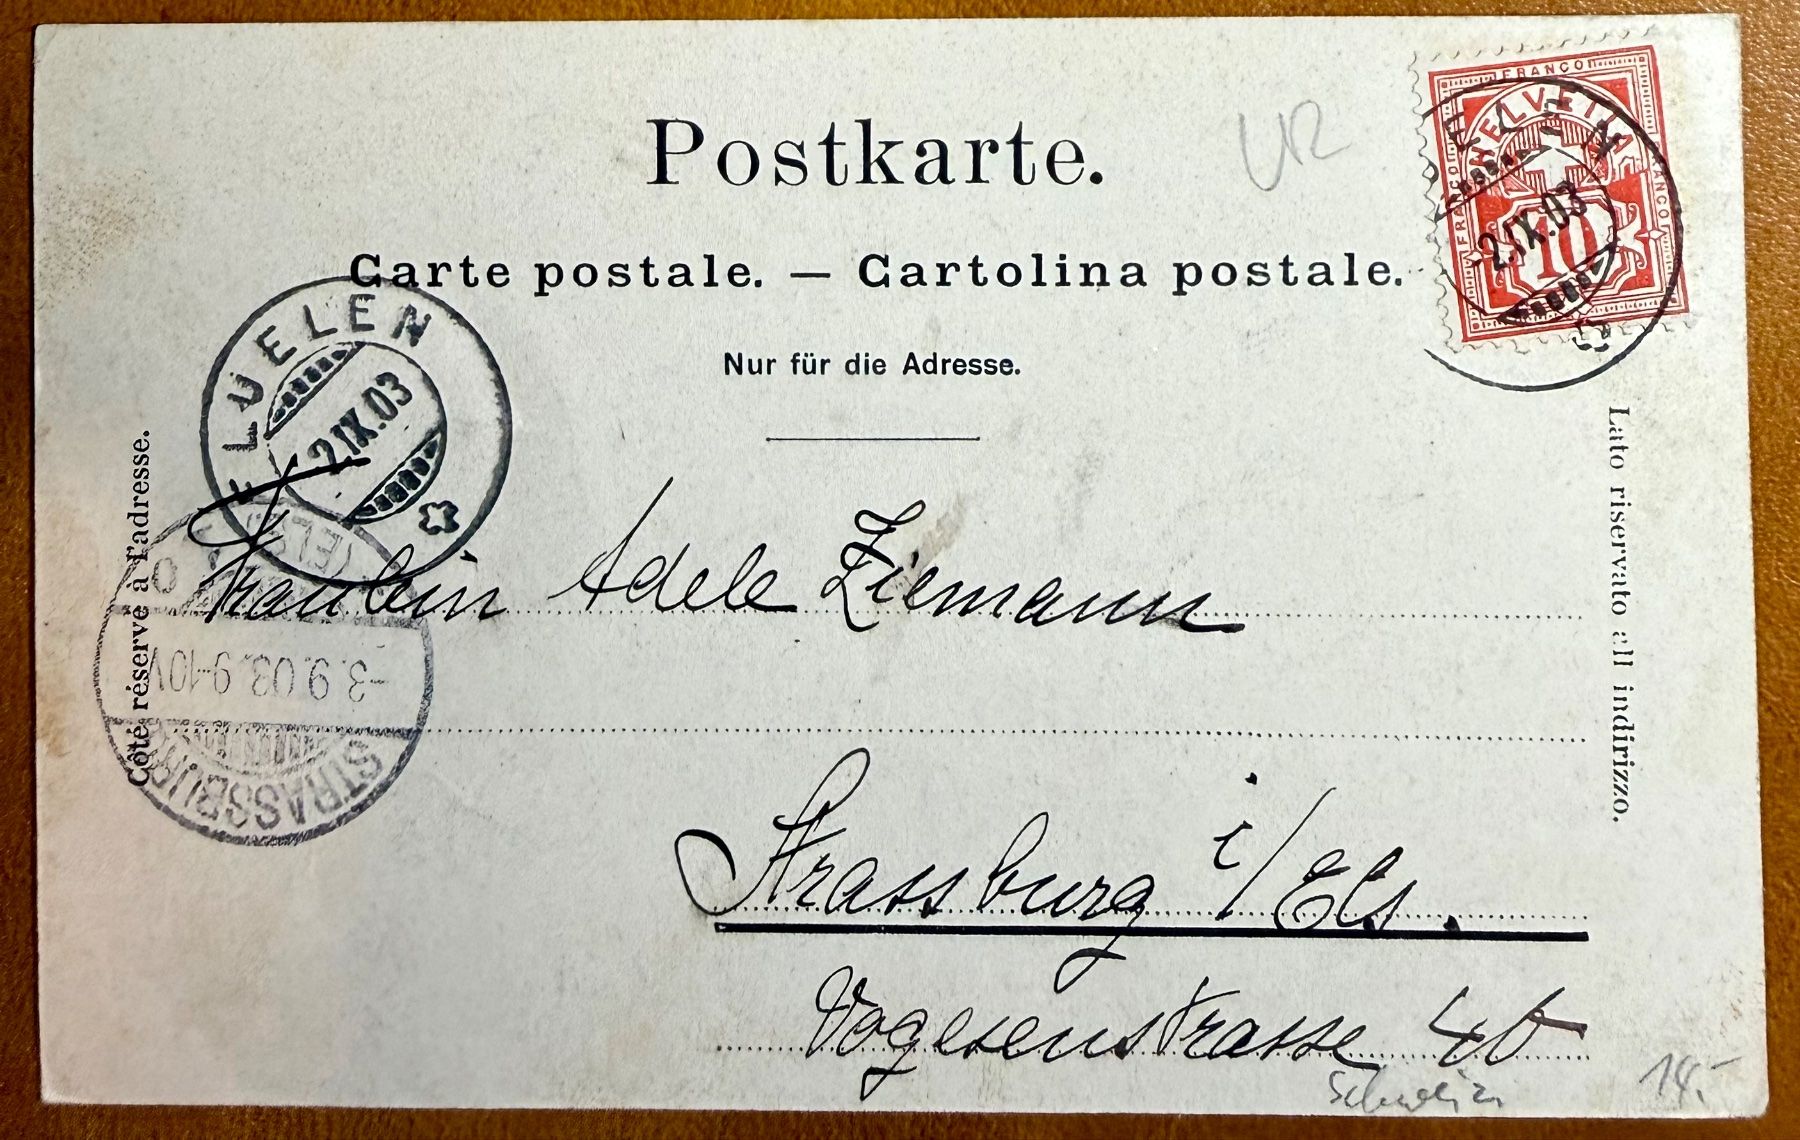 Postkarte.
UR
Carte postale. — Cartolina postale.
Nur für die Adresse.
FRANCO
FRANCO
FRANCO
HELVETIA
10
FLUELEN
2.IX.03
FLUELEN
2.IX.03
Côté réservé à l'adresse.
Lato riservato all indirizzo.
STRASSBURG
(ELS
-3.9.03.9-10V
Fräulein Adele Ziemann
Strassburg i/Els.
Vogesenstrasse
Schweiz
14.-